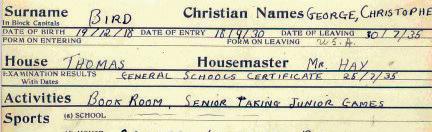 Surname BIRD Christian Names GEORGE, CHRISTOPHE
In Block Capitals
DATE OF BIRTH 19/12/18 DATE OF ENTRY 18/9/30 DATE OF LEAVING 30/7/35
FORM ON ENTERING FORM ON LEAVING U.S.A.
House THOMAS Housemaster MR. HAY
EXAMINATION RESULTS GENERAL SCHOOLS CERTIFICATE 25/7/35
With Dates
Activities BOOK ROOM, SENIOR TAKING JUNIOR GAMES
Sports (a) SCHOOL